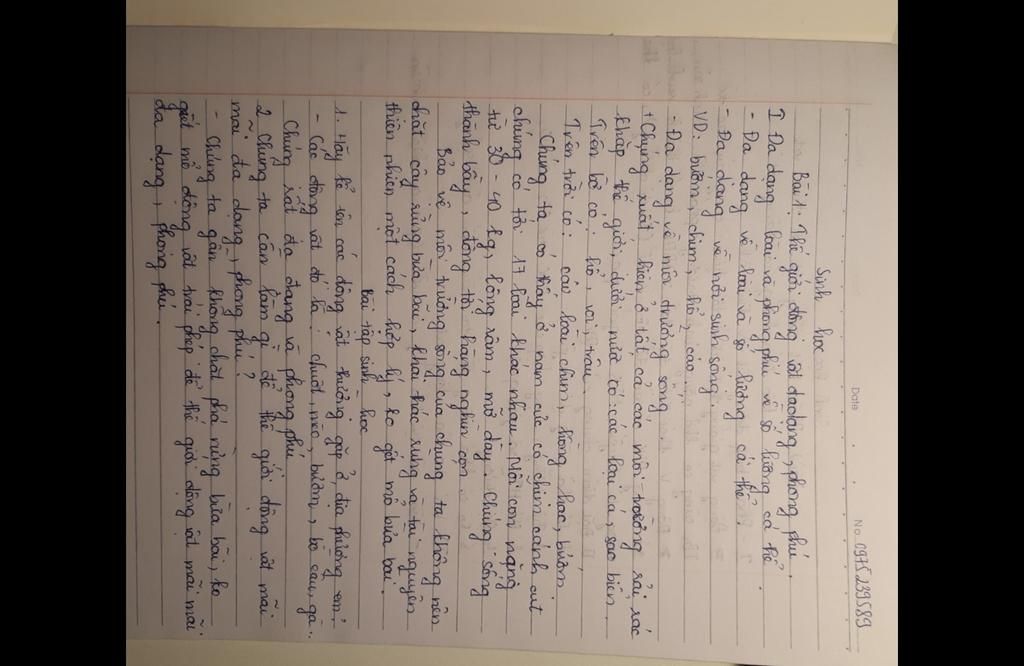 Date No. 0975239589
Sinh học
Bài 1. Thế giới động vật đa dạng, phong phú.
I Đa dạng loài và phong phú về số lượng cá thể
- Đa dạng về loài và số lượng cá thể.
- Đa dạng về nơi sinh sống.
VD: bướm, chim, hổ, cáo...
- Đa dạng về môi trường sống
+ Chúng xuất hiện ở tất cả các môi trường rải rác
khắp thế giới, dưới nước có các loại cá, sao biển.
Trên bờ có: hổ, voi, trâu.
Trên trời có: các loài chim, hồng hạc, bướm.
Chúng ta có thấy ở nam cực có chim cánh cụt
chúng có tới 17 loài khác nhau. Mỗi con nặng
từ 30 - 40 kg, lông rậm, mỡ dày. Chúng sống
thành bầy, đông tới hàng nghìn con.
Bảo vệ môi trường sống của chúng ta không nên
chặt cây rừng bừa bãi, khai thác rừng và tài nguyên
thiên nhiên một cách hợp lý, ko giết mổ bừa bãi.
Bài tập sinh học
1. Hãy kể tên các động vật thường gặp ở địa phương em?
- Các động vật đó là: chuột, mèo, bướm, bồ câu, gà..
Chúng rất đa dạng và phong phú
2 Chúng ta cần làm gì để thế giới động vật mãi
mãi đa dạng, phong phú?
- Chúng ta gần không chặt phá rừng bừa bãi, ko
giết mổ động vật trái phép để thế giới động vật mãi mãi
đa dạng, phong phú.